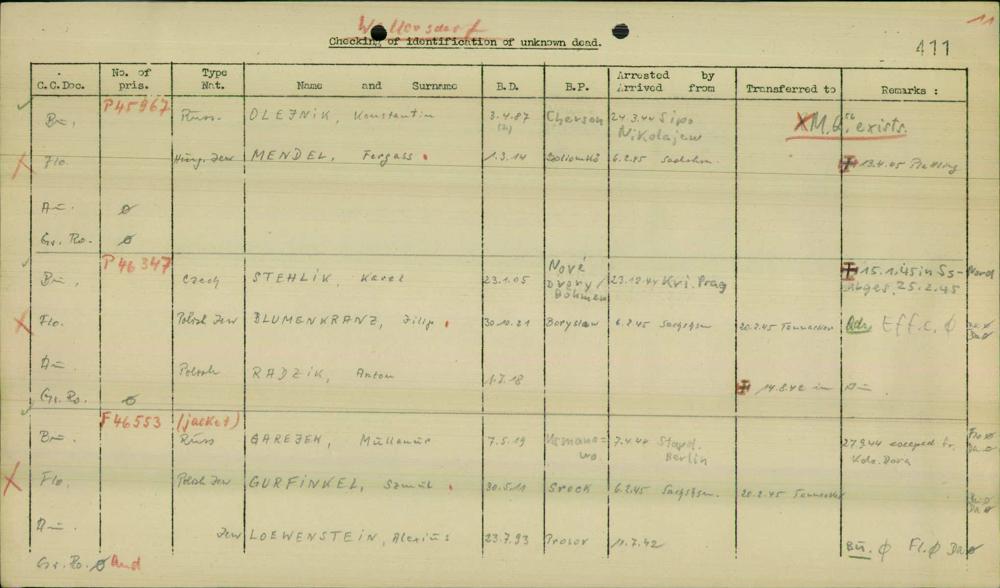 Wallersdorf
11
Checking of identification of unknown dead.
411
C.C.Doc. No. of pris. Type Nat. Name and Surname B.D. B.P. Arrested by Arrived from Transferred to Remarks :
P45967
Bu. Russ. OLEJNIK, Konstantin 3.4.87 Cherson 24.3.44 Sipo Nikolajew XM.Q. exists.
Flo. Hung. Jew MENDEL, Fergass 1.3.14 6.2.45 Sachshsn. 13.4.45 Plattling
Au. ø
Gr. Ro. ø
P46347
Bu. Czech STEHLIK, Karel 23.1.05 Nové Dvory/Böhmen 23.12.44 Kri. Prag 15.1.45 in SS-Nord Abges. 25.2.45
Flo. Polish Jew BLUMENKRANZ, Filip 30.10.21 Boryslaw 6.2.45 Sachshsn 20.2.45 Gannacker Eff.c. Ø
Au. Polish RADZIK, Anton 1.7.18 14.8.42 in Au
Gr. Ro. ø
F46553 (jacket)
Bu. Russ GAREJEW, 7.5.19 7.4.44 Stapol. Berlin 27.9.44 escaped fr. Kdo. Dora
Flo. Polish Jew GURFINKEL, Szmul 30.5.11 Srock 6.2.45 Sachshsn. 20.2.45 Gannacker
Au. Jew LOEWENSTEIN, Alexius 23.7.93 11.7.42 Bu. Ø Fl. Ø Da ø
Gr. Ro. ø And